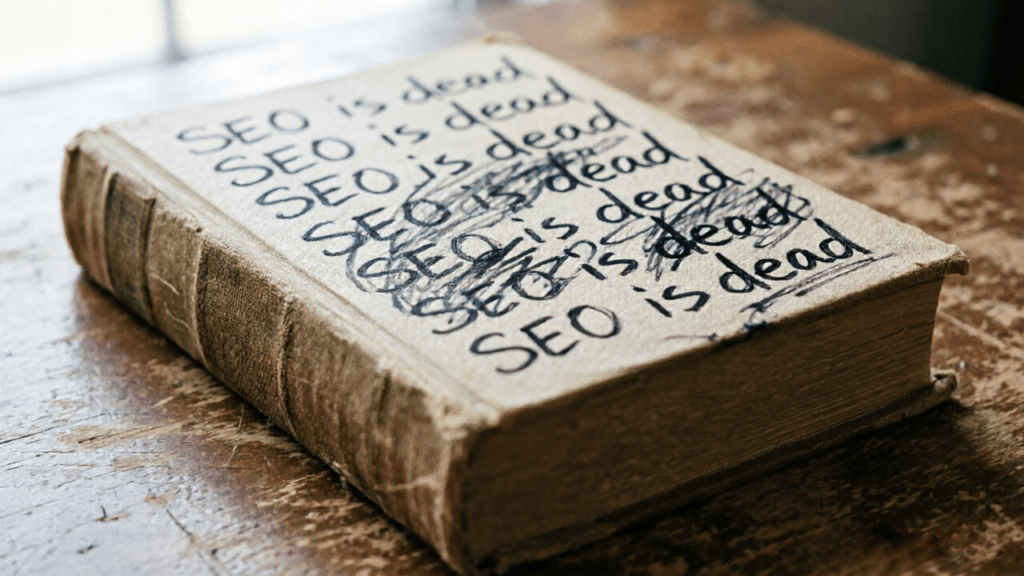 SEO is dead
SEO is dead
SEO is dead
SEO is dead
SEO is dead
SEO is dead
SEO is dead